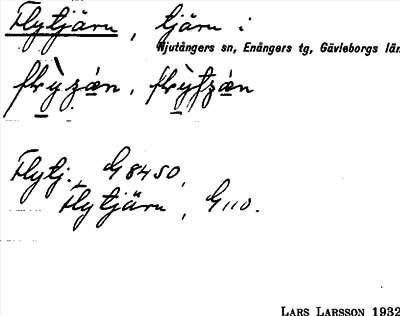 Flytjärn, tjärn i
Njutångers sn, Enångers tg, Gävleborgs län
Flytj., G8450,
Flytjärn, G110.
LARS LARSSON 1932